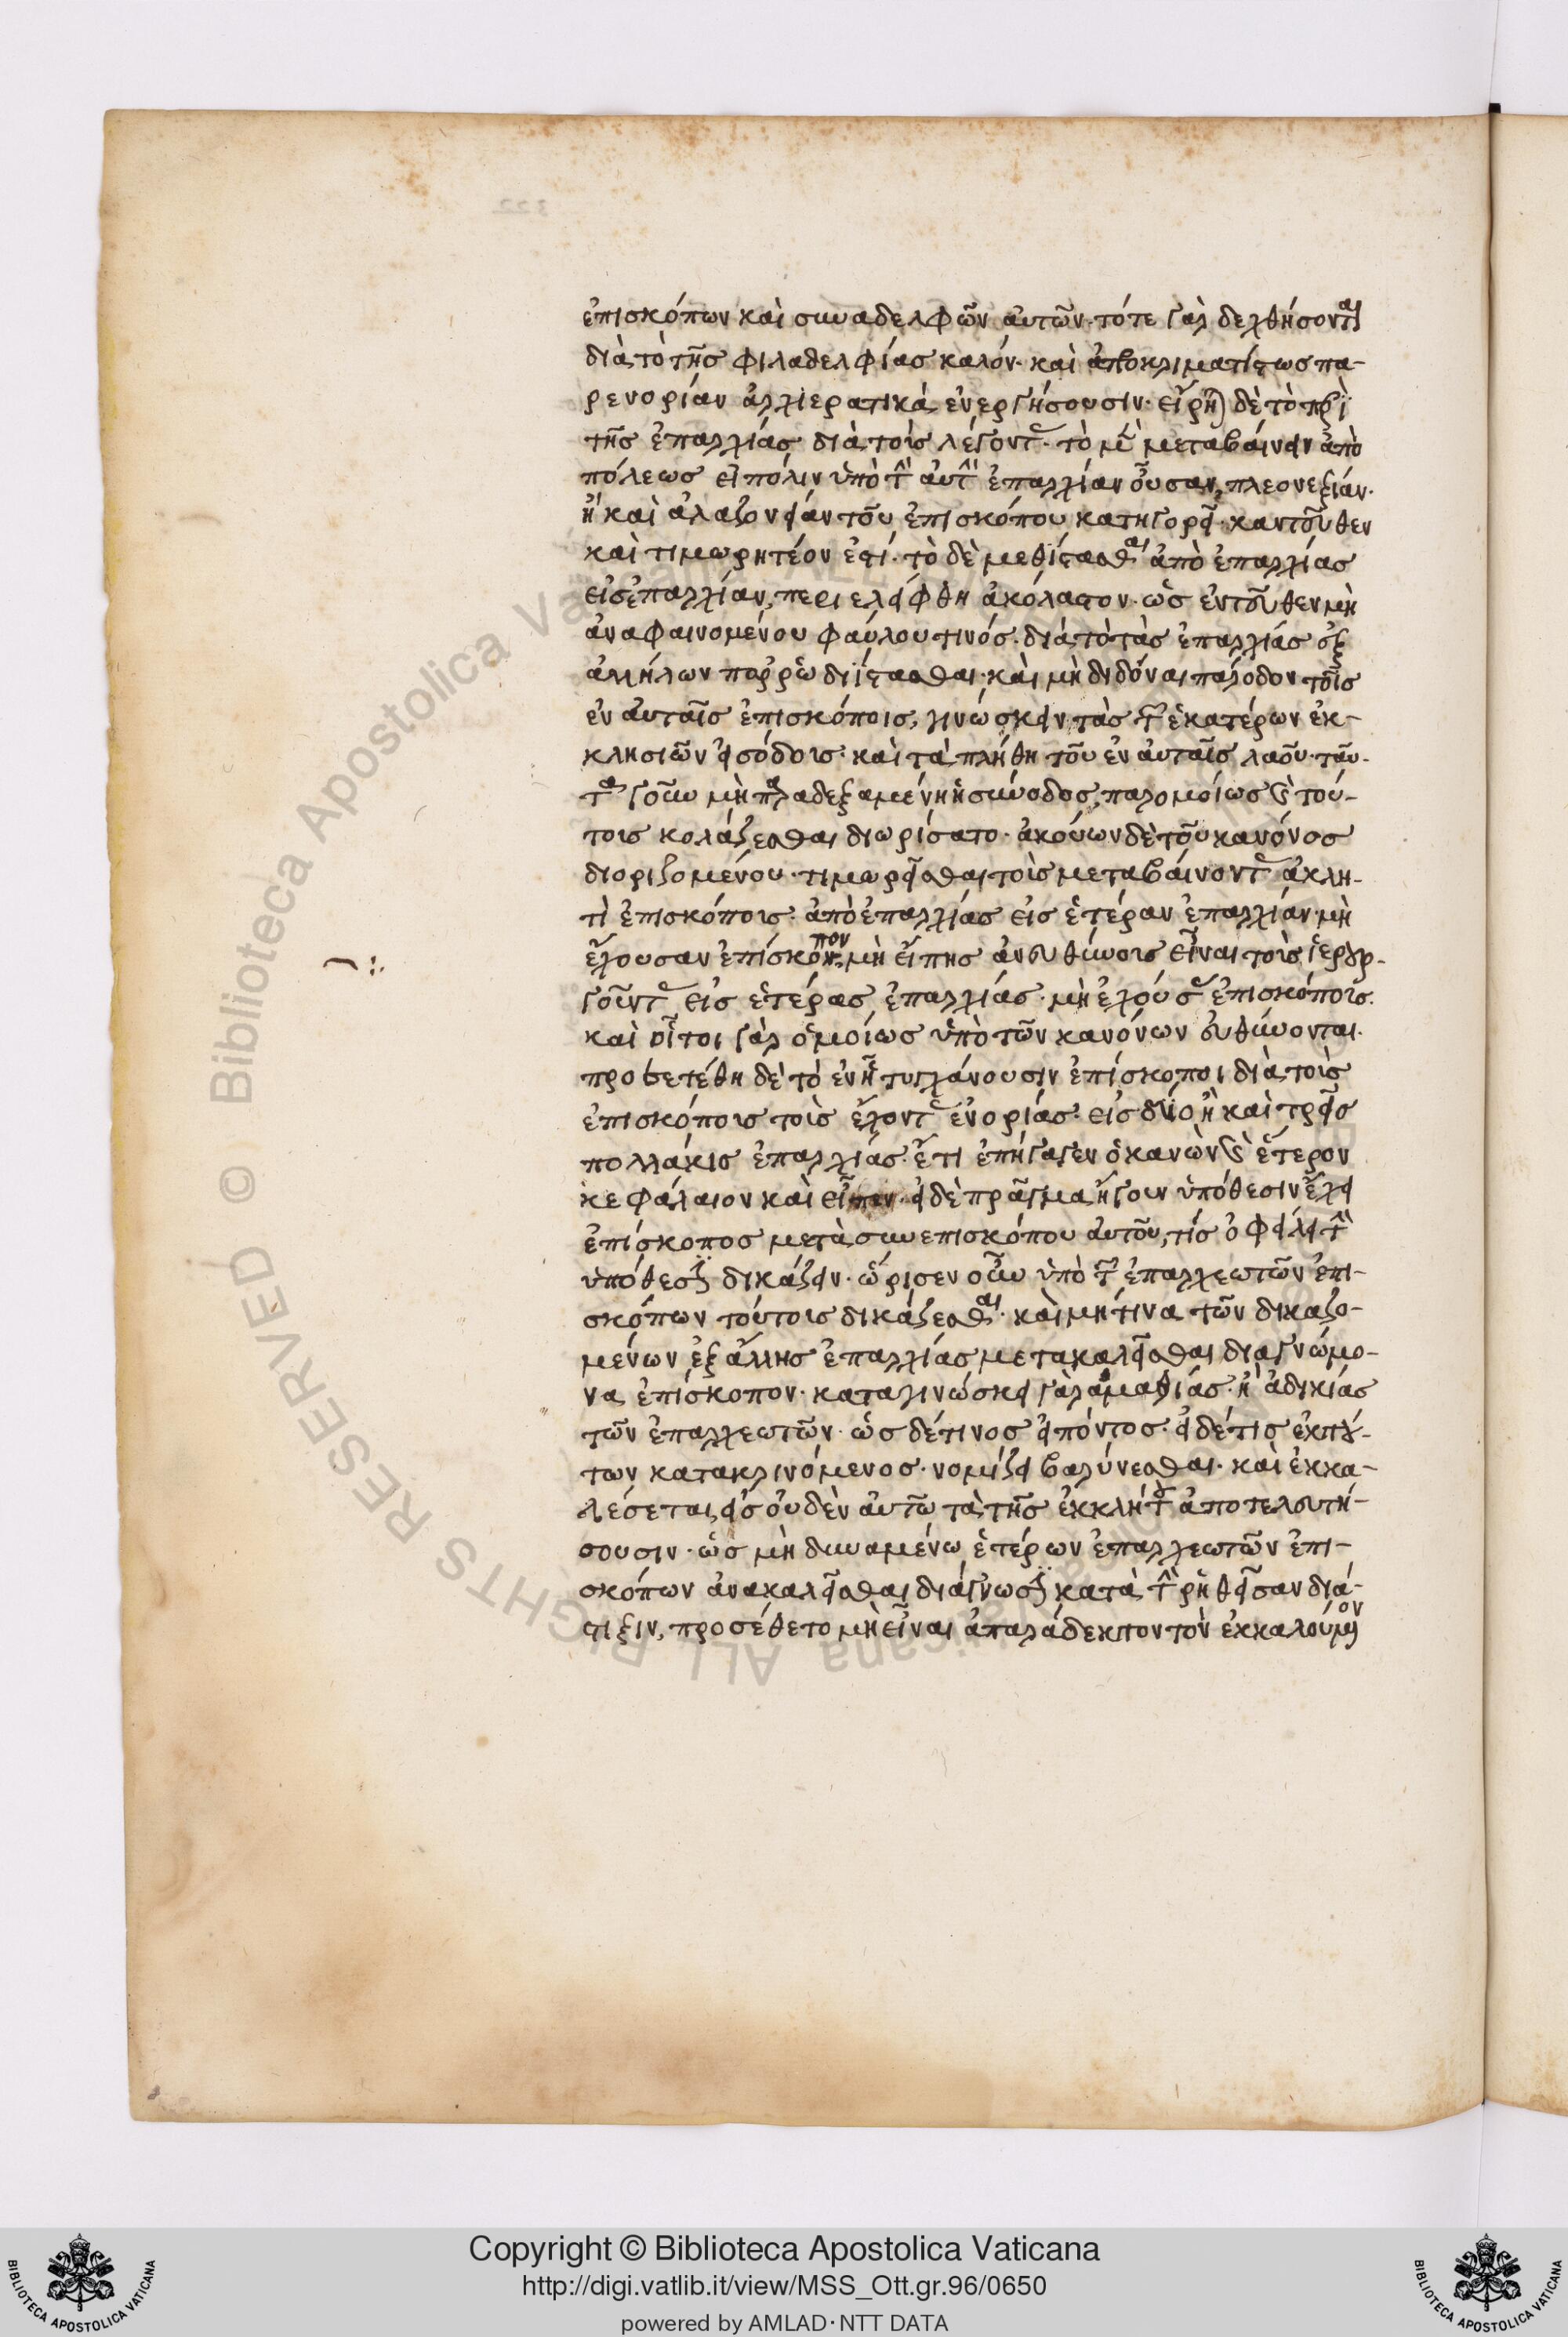 ἐπισκόπων καὶ συναδελφῶν αὐτῶν· τότε γὰρ δεχθήσονται
διὰ τὸ τῆς φιλαδελφίας καλόν· καὶ ἀποκριματίστως πα-
ρενορίαν ἀρχιερατικὰ ἐνεργήσουσιν· εἴρηται δὲ τὸ περὶ
τῆς ἐπαρχίας διὰ τοὺς λέγοντας· τὸ μὲν μεταβαίνειν ἀπὸ
πόλεως εἰ πόλιν ὑπὸ τὴν αὐτὴν ἐπαρχίαν οὖσαν, πλεονεξίαν·
ἢ καὶ ἀλαζονείαν τοῦ ἐπισκόπου κατηγορεῖ· καντεῦθεν
καὶ τιμωρητέον ἐστί· τὸ δὲ μεθίστασθαι ἀπὸ ἐπαρχίας
εἰς ἐπαρχίαν, περιελείφθη ἀκόλαστον· ὡς ἐντεῦθεν μὴ
ἀναφαινομένου φαύλου τινός· διὰ τὸ τὰς ἐπαρχίας ἐξ
ἀλλήλων πόρρω διΐστασθαι· καὶ μὴ διδόναι πάροδον τοῖς
ἐν αὐταῖς ἐπισκόποις, γινώσκειν τὰς τῶν ἑκατέρων ἐκ-
κλησιῶν εἰσόδους· καὶ τὰ πλήθη τοῦ ἐν αὐταῖς λαοῦ· ταῦ-
τα γοῦν μὴ παραδεξαμένη ἡ σύνοδος, παρομοίως καὶ τού-
τους κολάζεσθαι διωρίσατο· ἀκούων δὲ τοῦ κανόνος
διοριζομένου· τιμωρεῖσθαι τοὺς μεταβαίνοντας ἀκλη-
τὶ ἐπισκόπους· ἀπὸ ἐπαρχίας εἰς ἑτέραν ἐπαρχίαν· μὴ
ἔχουσαν ἐπίσκοπον· μὴ εἴπῃς ἀνευθύνους εἶναι τοὺς ἱερουρ-
γοῦντας εἰς ἑτέρας ἐπαρχίας· μὴ ἐχούσας ἐπισκόπους.
καὶ οὗτοι γὰρ ὁμοίως ὑπὸ τῶν κανόνων εὐθύνονται·
προσετέθη δὲ τὸ ἐν ᾗ τυγχάνουσιν ἐπίσκοποι διὰ τοὺς
ἐπισκόπους τοὺς ἔχοντας ἐνορίας· εἰς δύο ἢ καὶ τρεῖς
πολλάκις ἐπαρχίας· ἔτι ἐπήγαγεν ὁ κανὼν καὶ ἕτερον
κεφάλαιον καὶ εἶπεν· εἰ δὲ πρᾶγμα ἤγουν ὑπόθεσιν ἔχει
ἐπίσκοπος μετὰ συνεπισκόπου αὐτοῦ, τίς ὀφείλει τὴν
ὑπόθεσιν δικάζειν· ὥρισεν οὖν ὑπὸ τῶν ἐπαρχεωτῶν ἐπι-
σκόπων τούτους δικάζεσθαι· καὶ μή τινα τῶν δικαζο-
μένων ἐξ ἄλλης ἐπαρχίας μετακαλεῖσθαι διαγνώμο-
να ἐπίσκοπον· καταγινώσκει γὰρ ἀμαθίας· ἢ ἀδικίας
τῶν ἐπαρχεωτῶν· ὡς δέ τινος εἰπόντος· εἰ δέ τις ἐκ τού-
των κατακρινόμενος· νομίζει βαρύνεσθαι· καὶ ἐκκα-
λέσεται, εἰς οὐδὲν αὐτῷ τὰ τῆς ἐκκλήτου ἀποτελευτή-
σουσιν· ὡς μὴ δυναμένῳ ἑτέρων ἐπαρχεωτῶν ἐπι-
σκόπων ἀνακαλεῖσθαι διάγνωσιν κατὰ τὴν ῥηθεῖσαν διά-
στιξιν, προσέθετο μὴ εἶναι ἀπαράδεκτον τὸν ἐκκαλούμενον
Copyright © Biblioteca Apostolica Vaticana
http://digi.vatlib.it/view/MSS_Ott.gr.96/0650
powered by AMLAD·NTT DATA
BIBLIOTECA APOSTOLICA VATICANA
BIBLIOTECA APOSTOLICA VATICANA